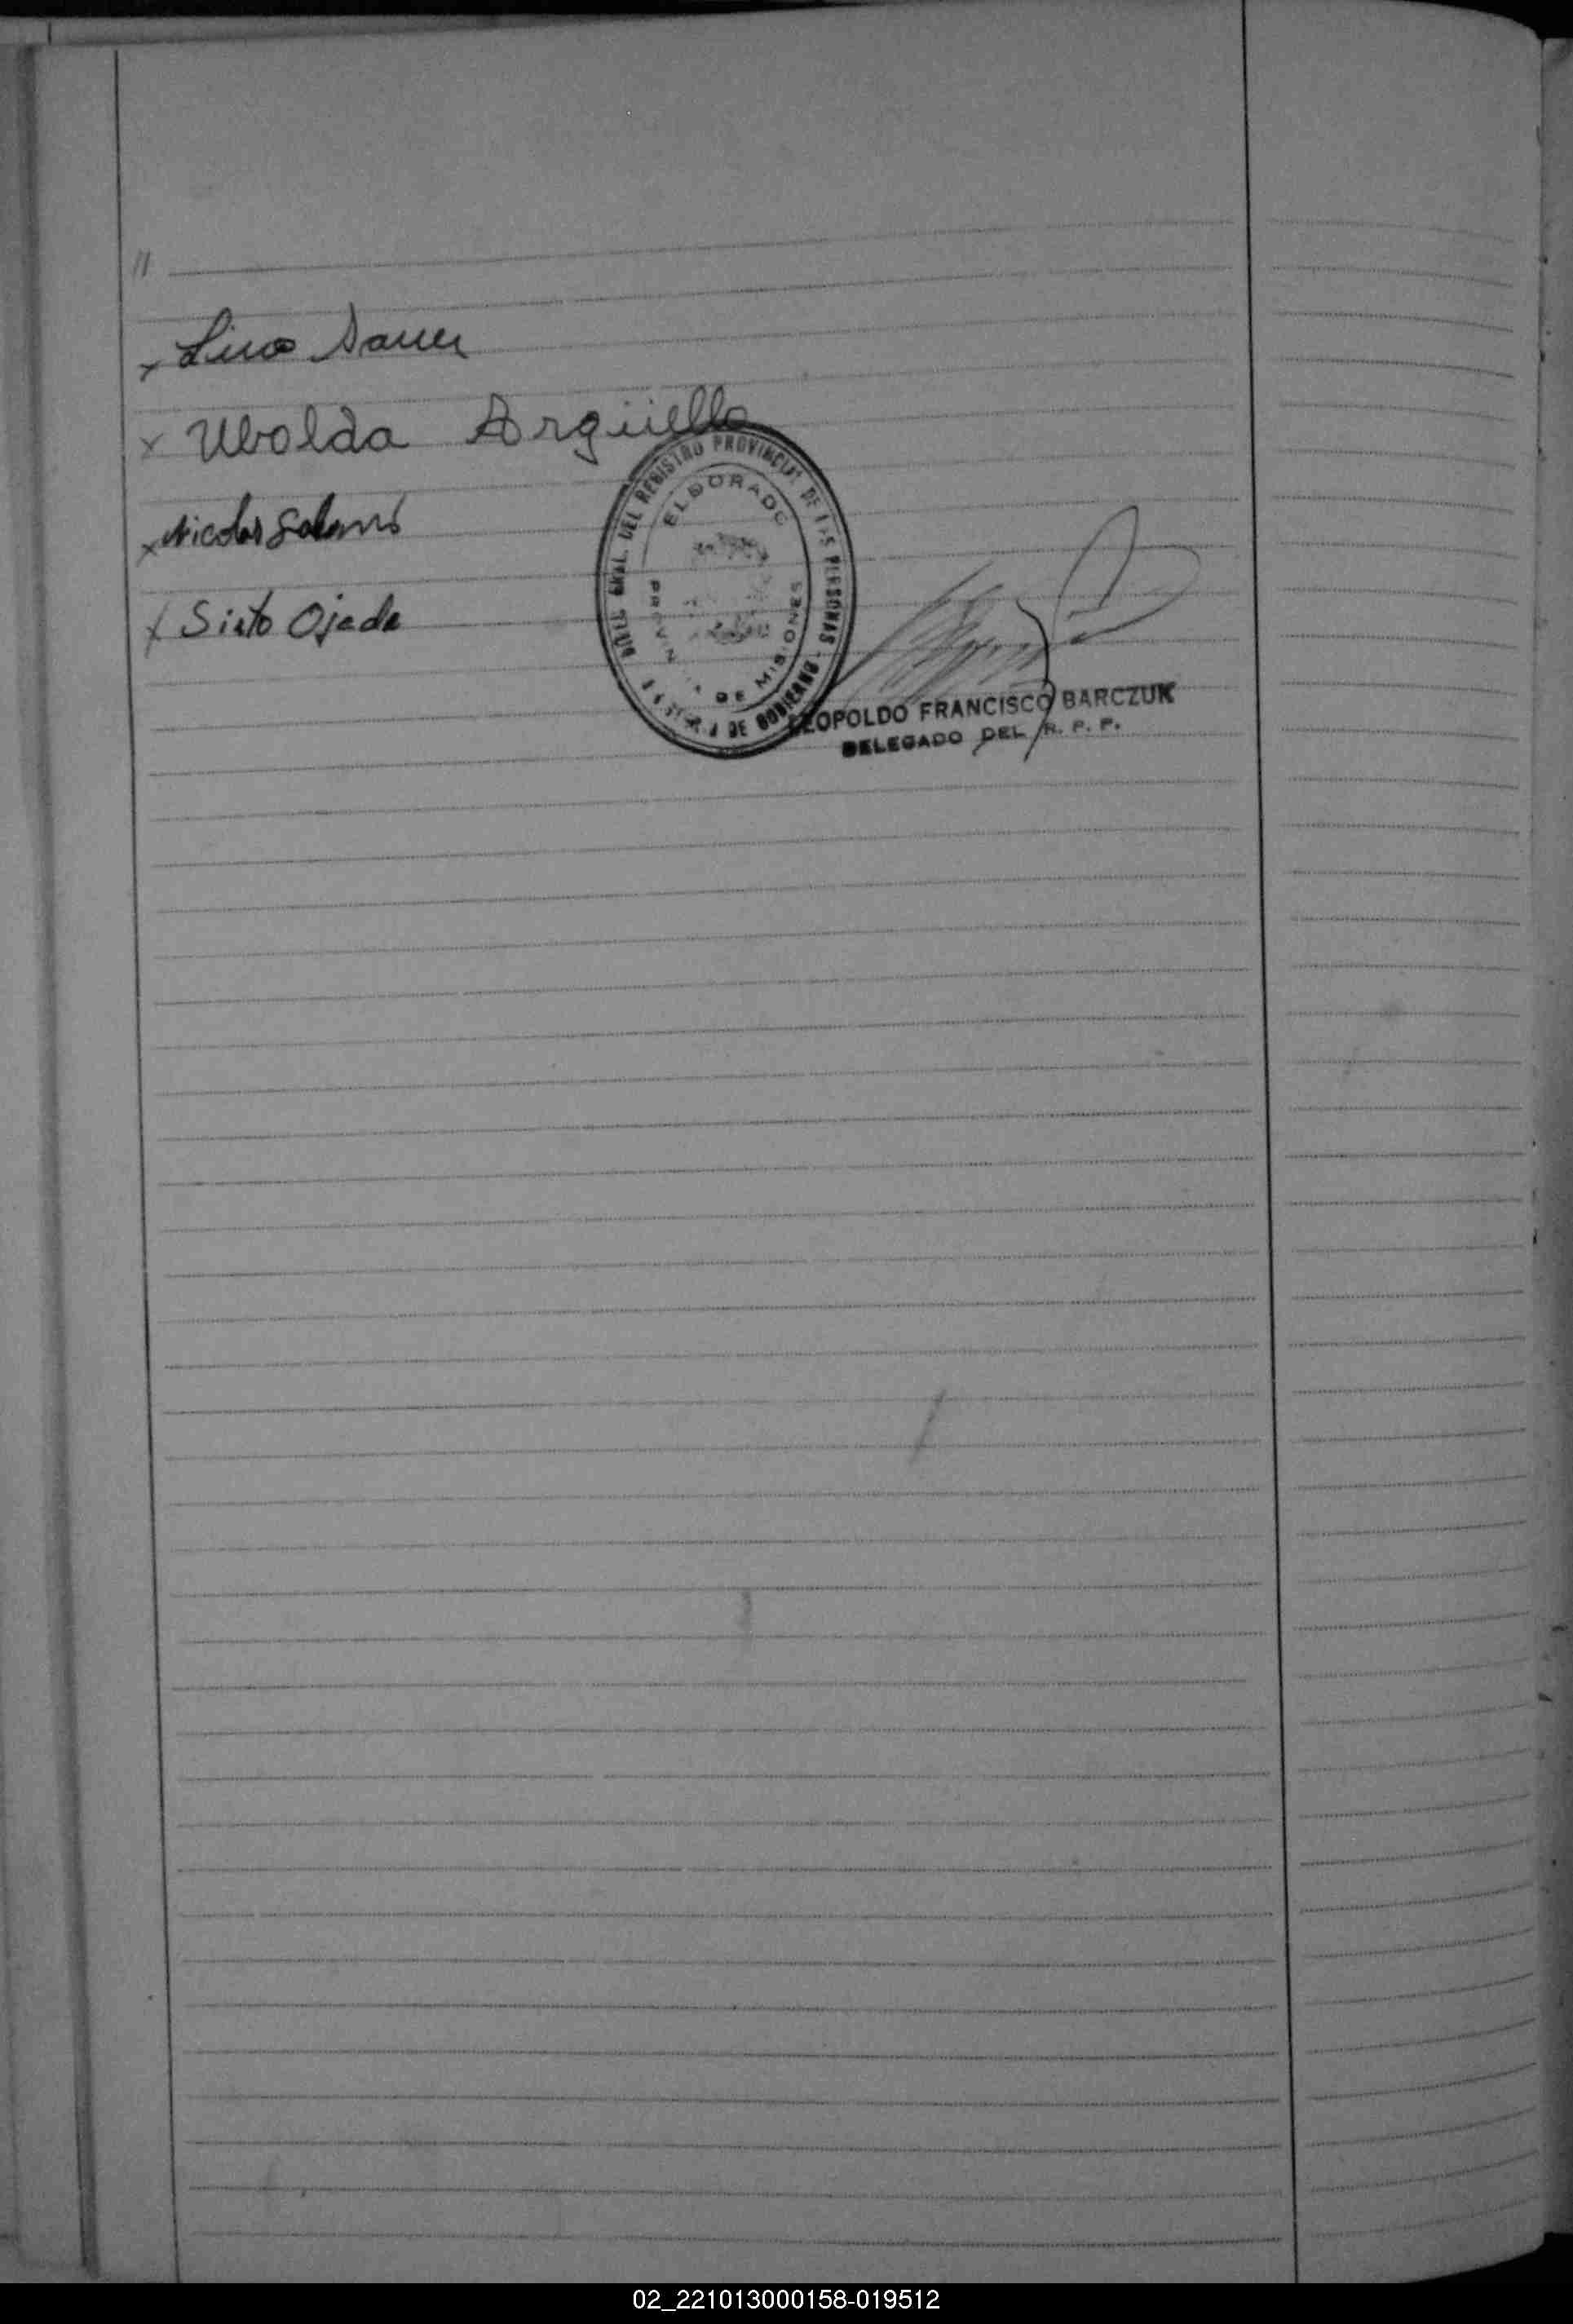 11
x Lino Sauer
x Ubolda Argüello
x Nicolas Galeano
x Sixto Ojeda
DREC. GRAL. DEL REGISTRO PROVINCIAL DE LAS PERSONAS - DE GOBIERNO
ELDORADO
PROVINCIA DE MISIONES
LEOPOLDO FRANCISCO BARCZUK
DELEGADO DEL R. P. P.
02_221013000158-019512